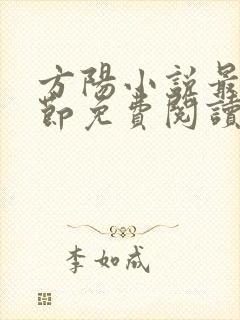 方陽小説最
節免費閱讀
李如成